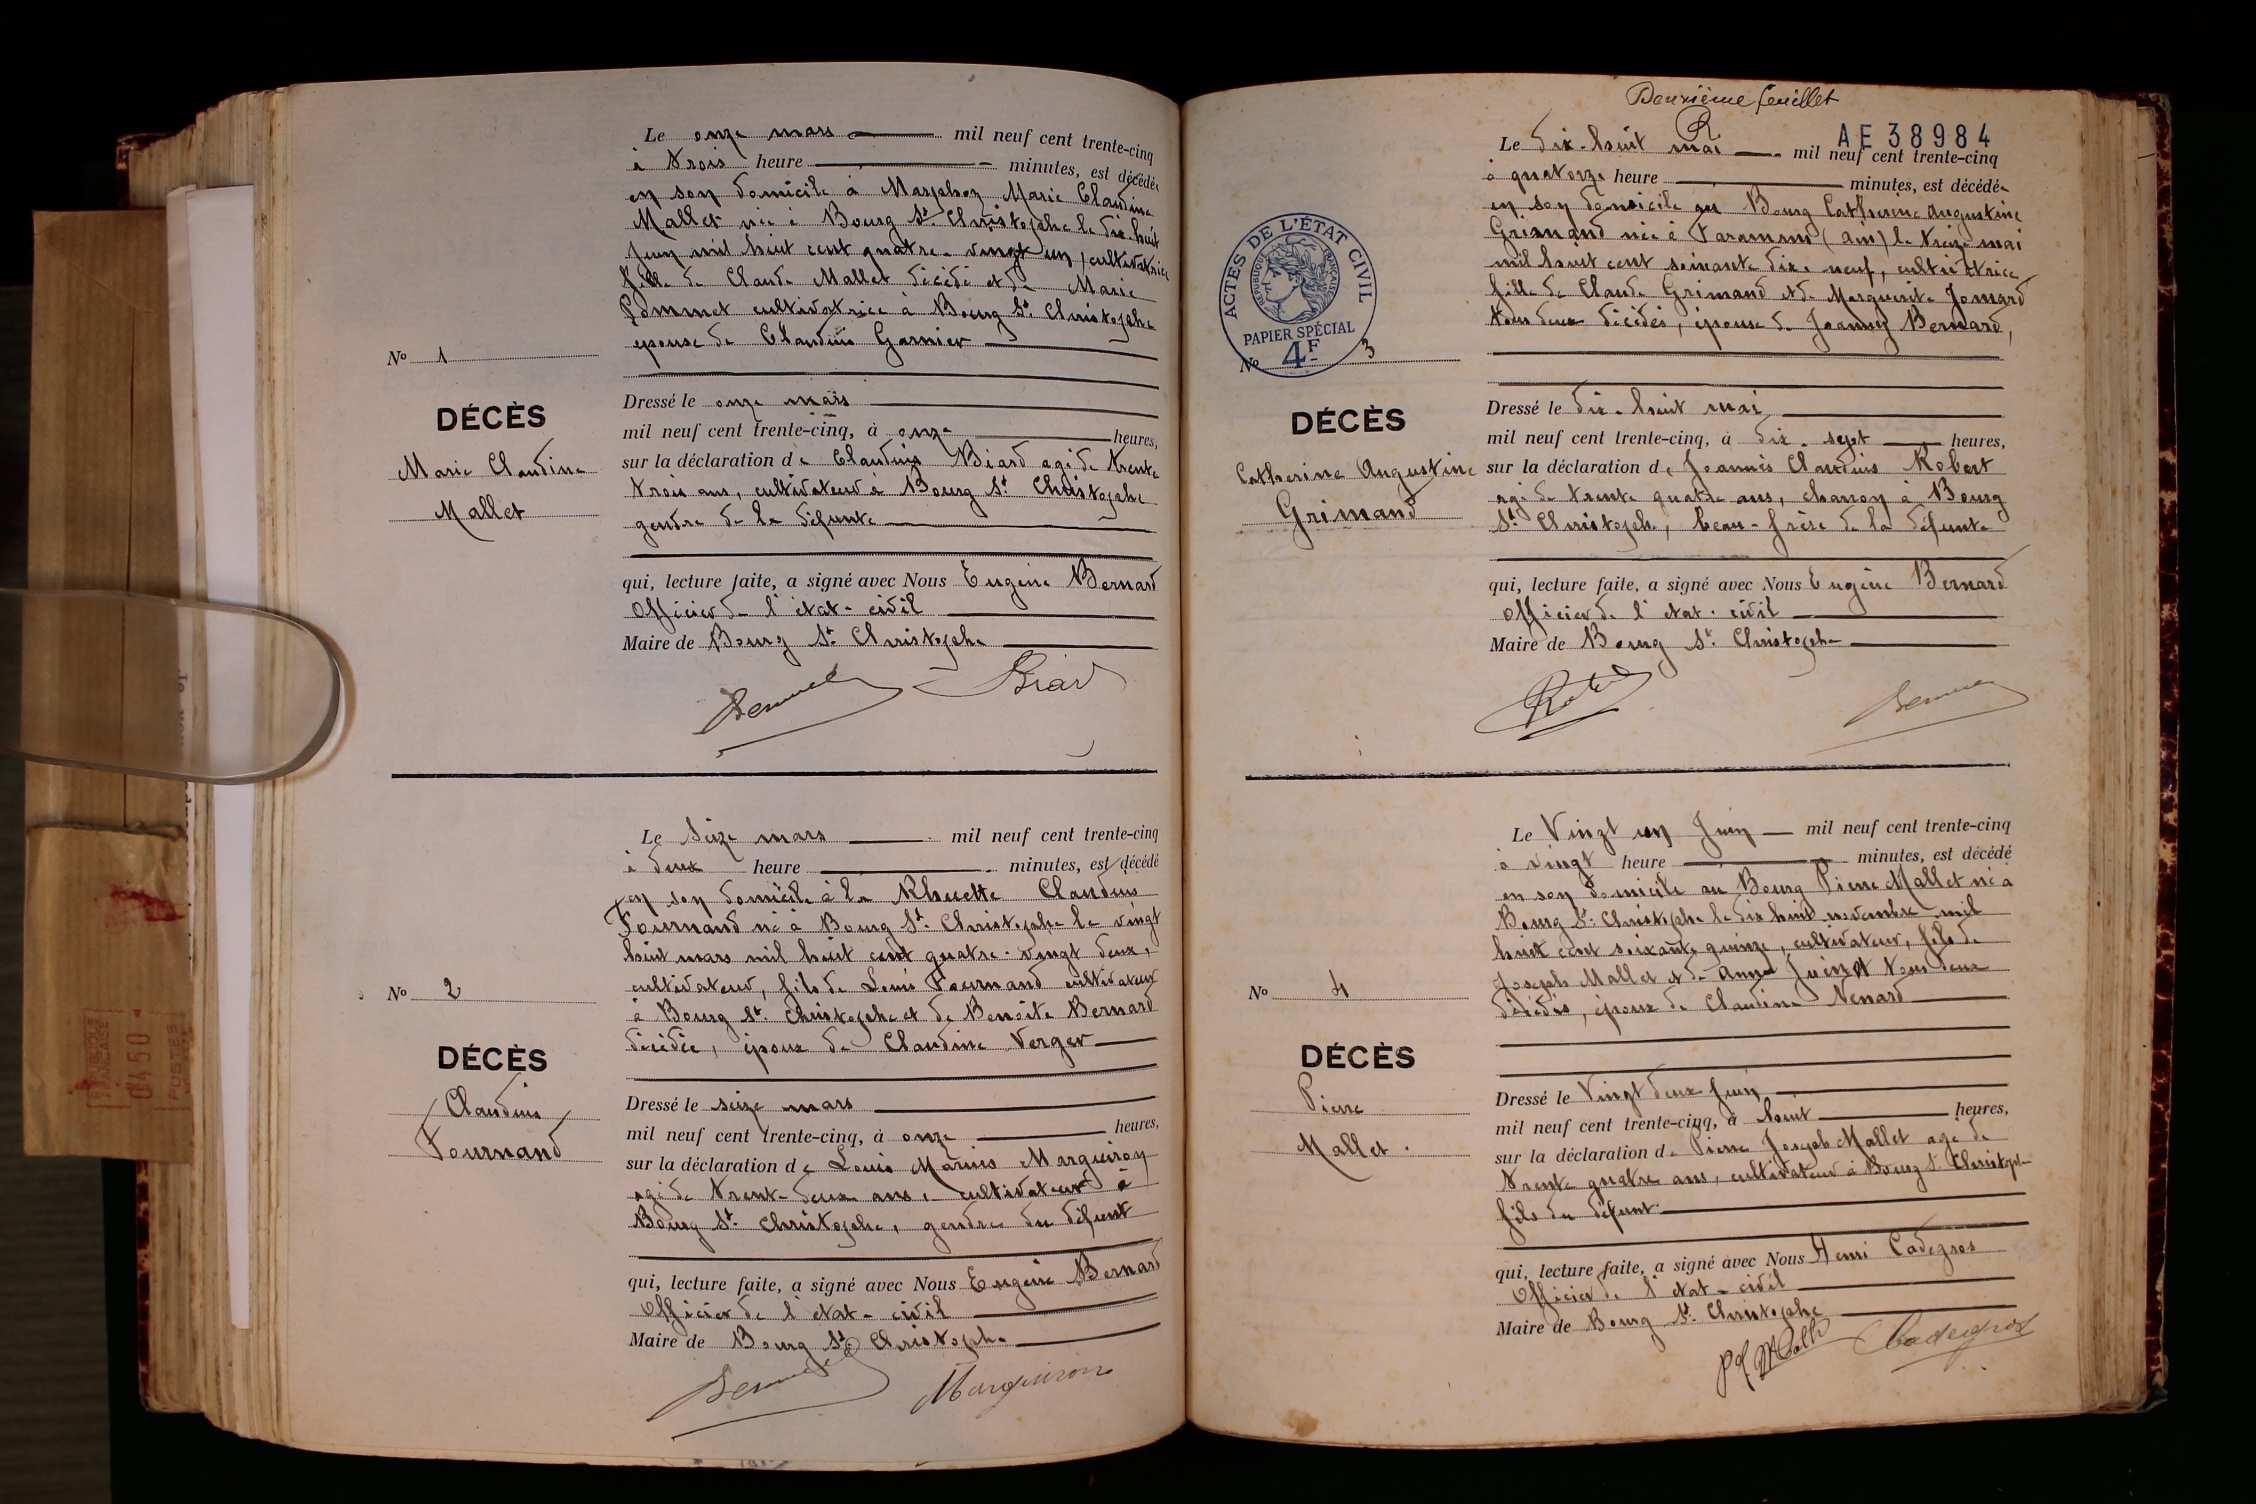 Le onze mars mil neuf cent trente-cinq
à trois heure minutes, est décédée
en son domicile à Marphoz Marie Claudine
Mallet née à Bourg St. Christophe le dix-huit
Juin mil huit cent quatre-vingt un, cultivatrice
fille de Claude Mallet décédé et de Marie
Pommet cultivatrice à Bourg St. Christophe
épouse de Claudius Garnier
No 1
DÉCÈS
Marie Claudine
Mallet
Dressé le onze mars
mil neuf cent trente-cinq, à onze heures,
sur la déclaration de Claudius Biard agé de trente
trois ans, cultivateur à Bourg St. Christophe
gendre de la défunte
qui, lecture faite, a signé avec Nous Eugène Bernard
Officier de l'état-civil
Maire de Bourg St. Christophe
Bernard Biard
Le Seize mars mil neuf cent trente-cinq
à deux heure minutes, est décédé
en son domicile à la Rhuette Claudius
Fournand né à Bourg St. Christophe le vingt
huit mars mil huit cent quatre-vingt deux,
cultivateur, fils de Louis Fournand cultivateur
à Bourg St. Christophe et de Benoîte Bernard
décédée, époux de Claudine Verger
No 2
DÉCÈS
Claudius
Fournand
Dressé le seize mars
mil neuf cent trente-cinq, à onze heures,
sur la déclaration de Louis Marius Marguiron
agé de trente-deux ans, cultivateur à
Bourg St. Christophe, gendre du défunt
qui, lecture faite, a signé avec Nous Eugène Bernard
Officier de l'état-civil
Maire de Bourg St. Christophe
Bernard Marguiron
Deuxième feuillet
AE 38984
Le dix-huit mai mil neuf cent trente-cinq
à quatorze heure minutes, est décédée
en son domicile au Bourg Catherine Augustine
Grimand née à Faramans (Ain) le treize mai
mil huit cent soixante dix-neuf, cultivatrice
fille de Claude Grimand et de Marguerite Jomard
tous deux décédés, épouse de Joanny Bernard,
ACTES DE L'ÉTAT CIVIL
RÉPUBLIQUE FRANÇAISE
PAPIER SPÉCIAL
4F
No 3
DÉCÈS
Catherine Augustine
Grimand
Dressé le dix-huit mai
mil neuf cent trente-cinq, à dix-sept heures,
sur la déclaration de Joannès Claudius Robert
agé de trente quatre ans, charron à Bourg
St. Christophe, beau-frère de la défunte
qui, lecture faite, a signé avec Nous Eugène Bernard
Officier de l'état-civil
Maire de Bourg St. Christophe
Bernard
Le Vingt un Juin mil neuf cent trente-cinq
à vingt heure minutes, est décédé
en son domicile au Bourg Pierre Mallet né à
Bourg St. Christophe le dix huit novembre mil
huit cent soixante quinze, cultivateur, fils de
Joseph Mallet et de Anne Juénet tous deux
décédés, époux de Claudine Venard
No 4
DÉCÈS
Pierre
Mallet.
Dressé le Vingt deux Juin
mil neuf cent trente-cinq, à huit heures,
sur la déclaration de Pierre Joseph Mallet agé de
trente quatre ans, cultivateur à Bourg St. Christophe
fils du défunt.
qui, lecture faite, a signé avec Nous Henri Cadegros
Officier de l'état-civil
Maire de Bourg St. Christophe
Cadegros
0450
POSTES